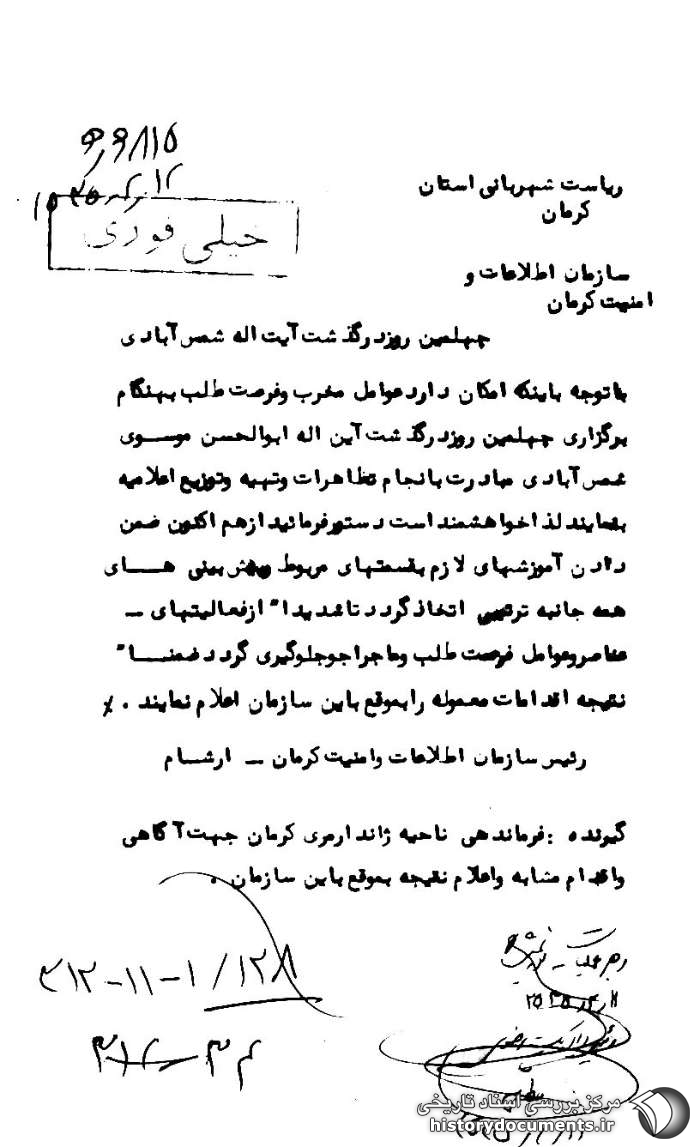 ۵ر۹۸۱۵
خیلی فوری
ریاست شهربانی استان
کرمان
سازمان اطلاعات و
امنیت کرمان
چهلمین روزدرگذشت آیت اله شمس آبادی
باتوجه باینکه امکان دارد عوامل مخرب وفرصت طلب بهنگام
برگزاری چهلمین روزدرگذشت آین اله ابوالحسن موسوی
شمس آبادی مبادرت بانجام تظاهرات وتهیه وتوزیع اعلامیه
بنمایند لذا خواهشمند است دستورفرمائید ازهم اکنون ضمن
دادن آموزشهای لازم بقسمتهای مربوط پیش بینی های
همه جانبه ترتیبی اتخاذ گردد تا شدیدا" ازفعالیتهای –
عناصروعوامل فرصت طلب وماجراجوجلوگیری گردد ضمنا"
نتیجه اقدامات معموله رابموقع باین سازمان اعلام نمایند . ٪
رئیس سازمان اطلاعات وامنیت کرمان – ارشام
گیرنده : فرماندهی ناحیه ژاندارمری کرمان جهت آگاهی
واقدام مشابه واعلام نتیجه بموقع باین سازمان .
۳۱۲-۱۱-۱/۱۲۸
مرکز بررسی اسناد تاریخی
historydocuments.ir